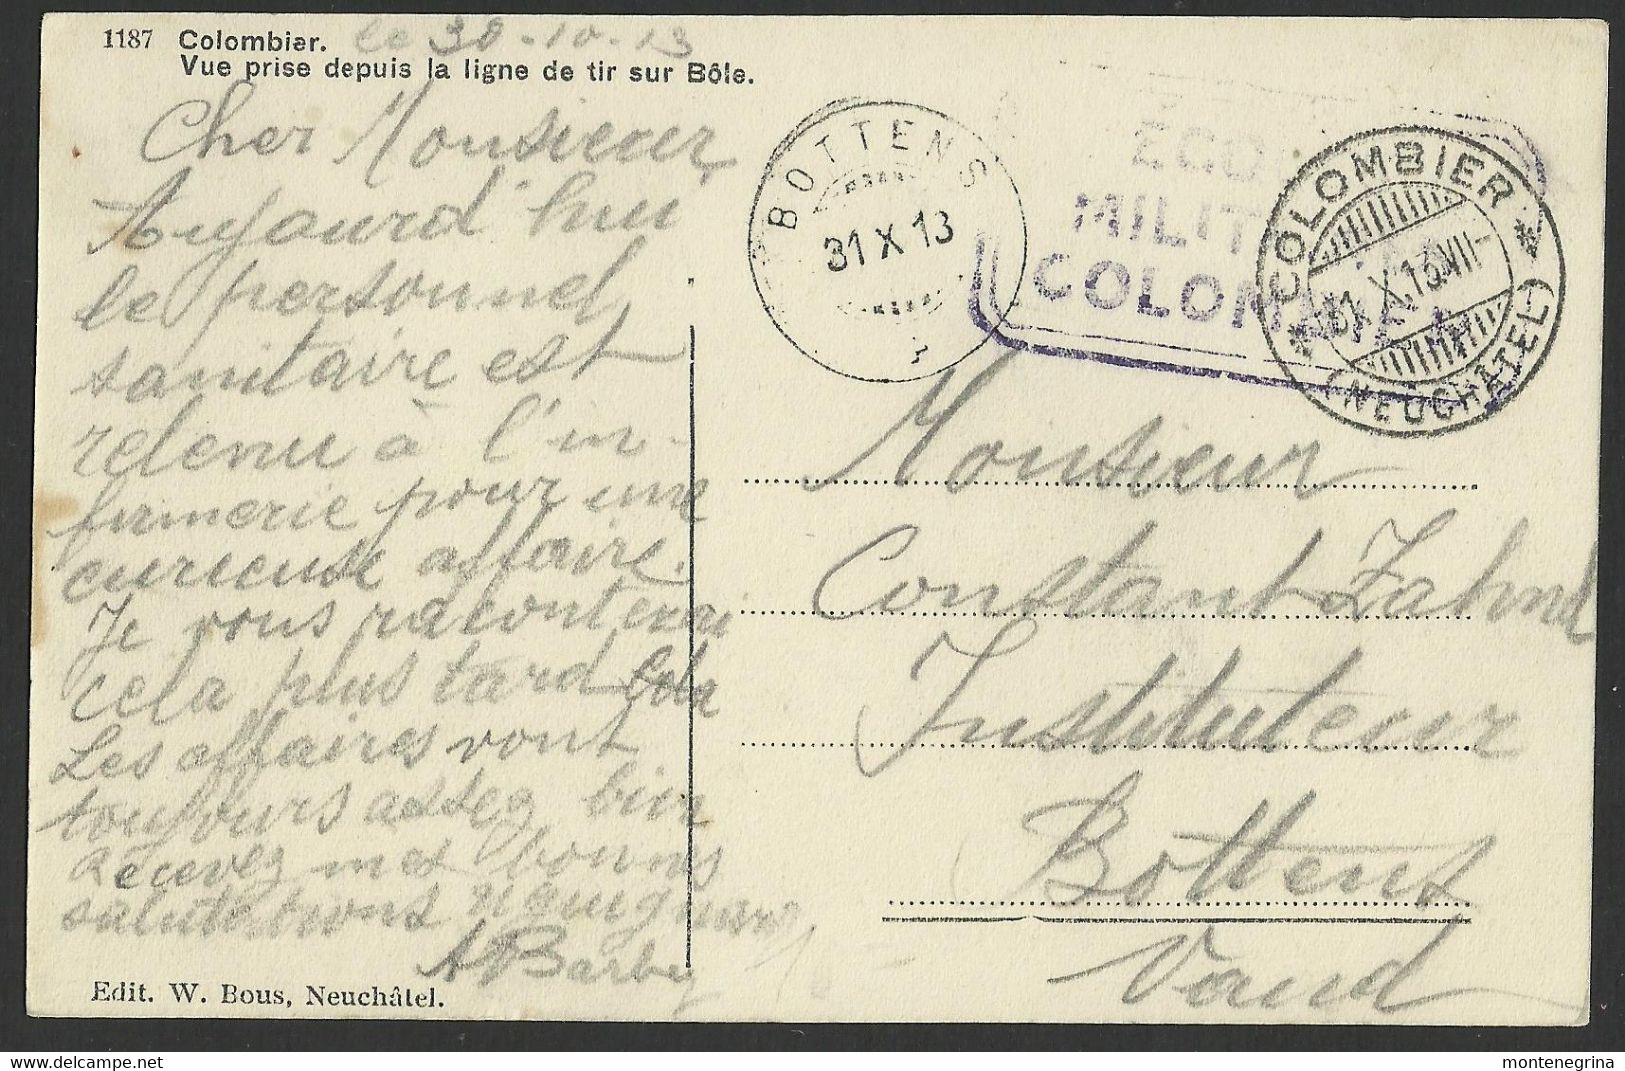 1187 Colombier. le 30-10-13
Vue prise depuis la ligne de tir sur Bôle.
Cher Monsieur
Aujourd'hui
le personnel
sanitaire est
retenu à l'in-
firmerie pour une
curieuse affaire.
Je vous raconterai
cela plus tard
Les affaires vont
toujours assez bien
Recevez mes bonnes
salutations
A Barbey
Edit. W. Bous, Neuchâtel.
BOTTENS
31 X 13
ÉCO
MILIT
COLOMBIER
COLOMBIER
31 X 13 VII-
(NEUCHATEL)
Monsieur
Constant Zahnd
Instituteur
Bottens
Vaud
delcampe.net
montenegrina